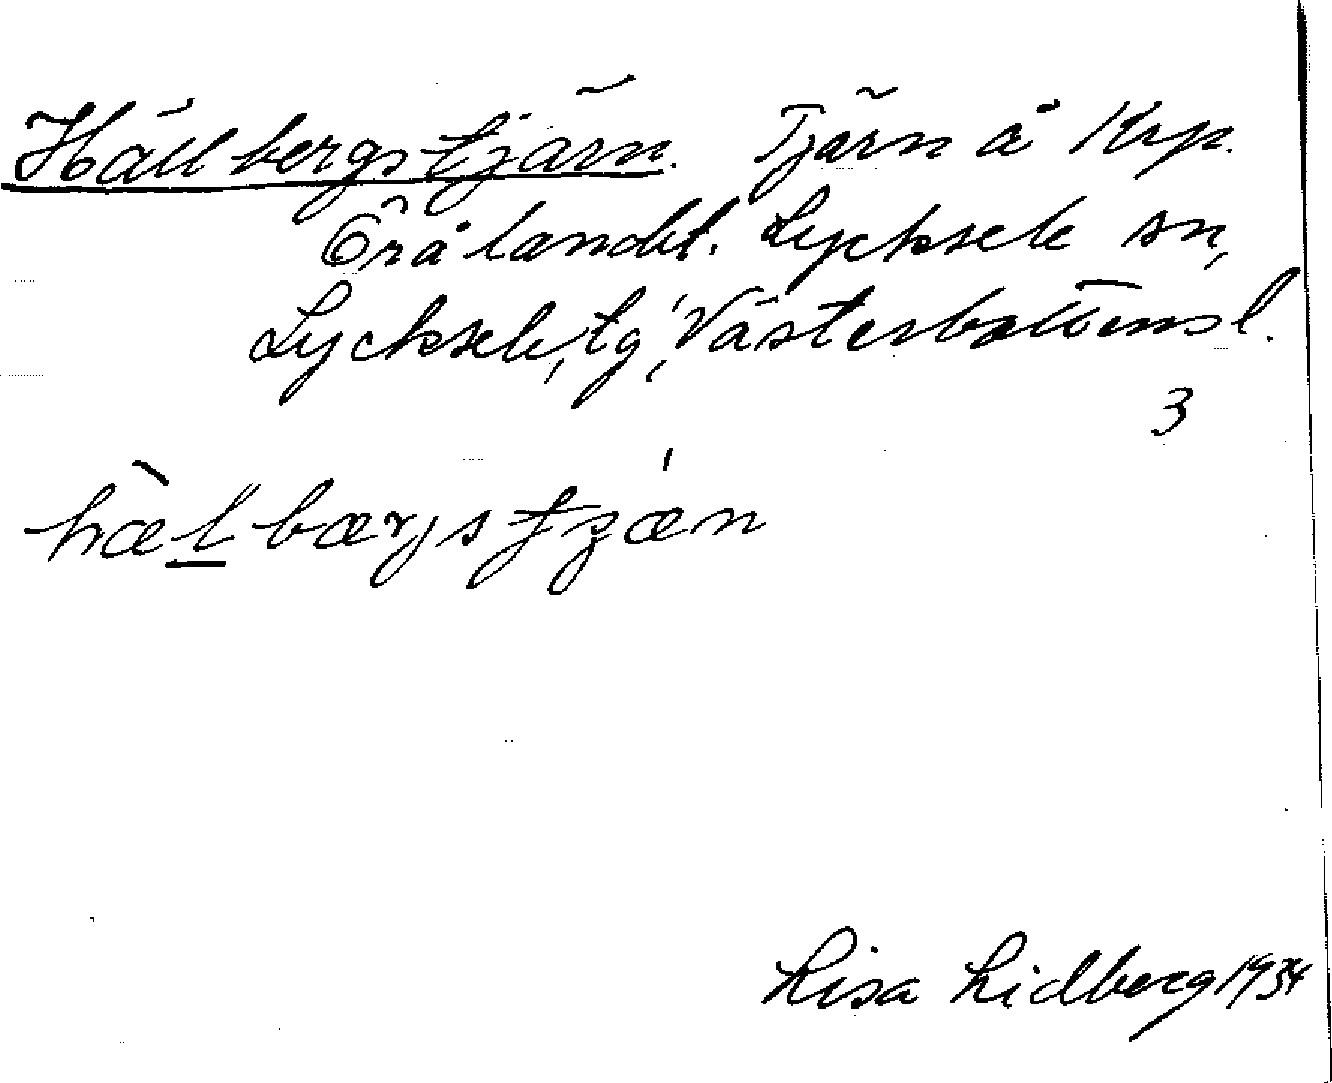 Hällbergstjärn. Tjärn å Krp.
Örålandet. Lycksele sn,
Lycksele tg, Västerbottensl.
3
hælbærjstjæn
Lisa Lidberg 1934